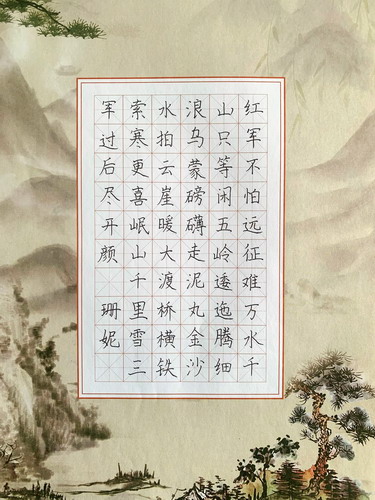 红军不怕远征难万水千
山只等闲五岭逶迤腾细
浪乌蒙磅礴走泥丸金沙
水拍云崖暖大渡桥横铁
索寒更喜岷山千里雪三
军过后尽开颜 珊妮